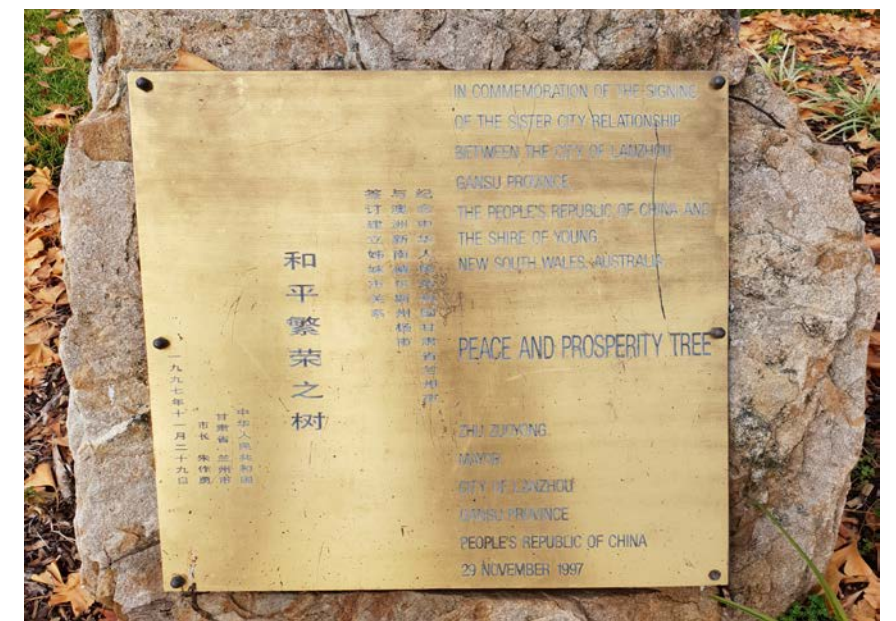 IN COMMEMORATION OF THE SIGNING
OF THE SISTER CITY RELATIONSHIP
BETWEEN THE CITY OF LANZHOU
GANSU PROVINCE
THE PEOPLE'S REPUBLIC OF CHINA AND
THE SHIRE OF YOUNG
NEW SOUTH WALES, AUSTRALIA
PEACE AND PROSPERITY TREE
ZHU ZUOYONG
MAYOR
CITY OF LANZHOU
GANSU PROVINCE
PEOPLE'S REPUBLIC OF CHINA
29 NOVEMBER 1997
纪念中华人民共和国甘肃省兰州市
与澳洲新南威尔斯州杨市
签订建立姊妹市关系
和平繁荣之树
中华人民共和国
甘肃省 兰州市
市长 朱作勇
一九九七年十一月二十九日